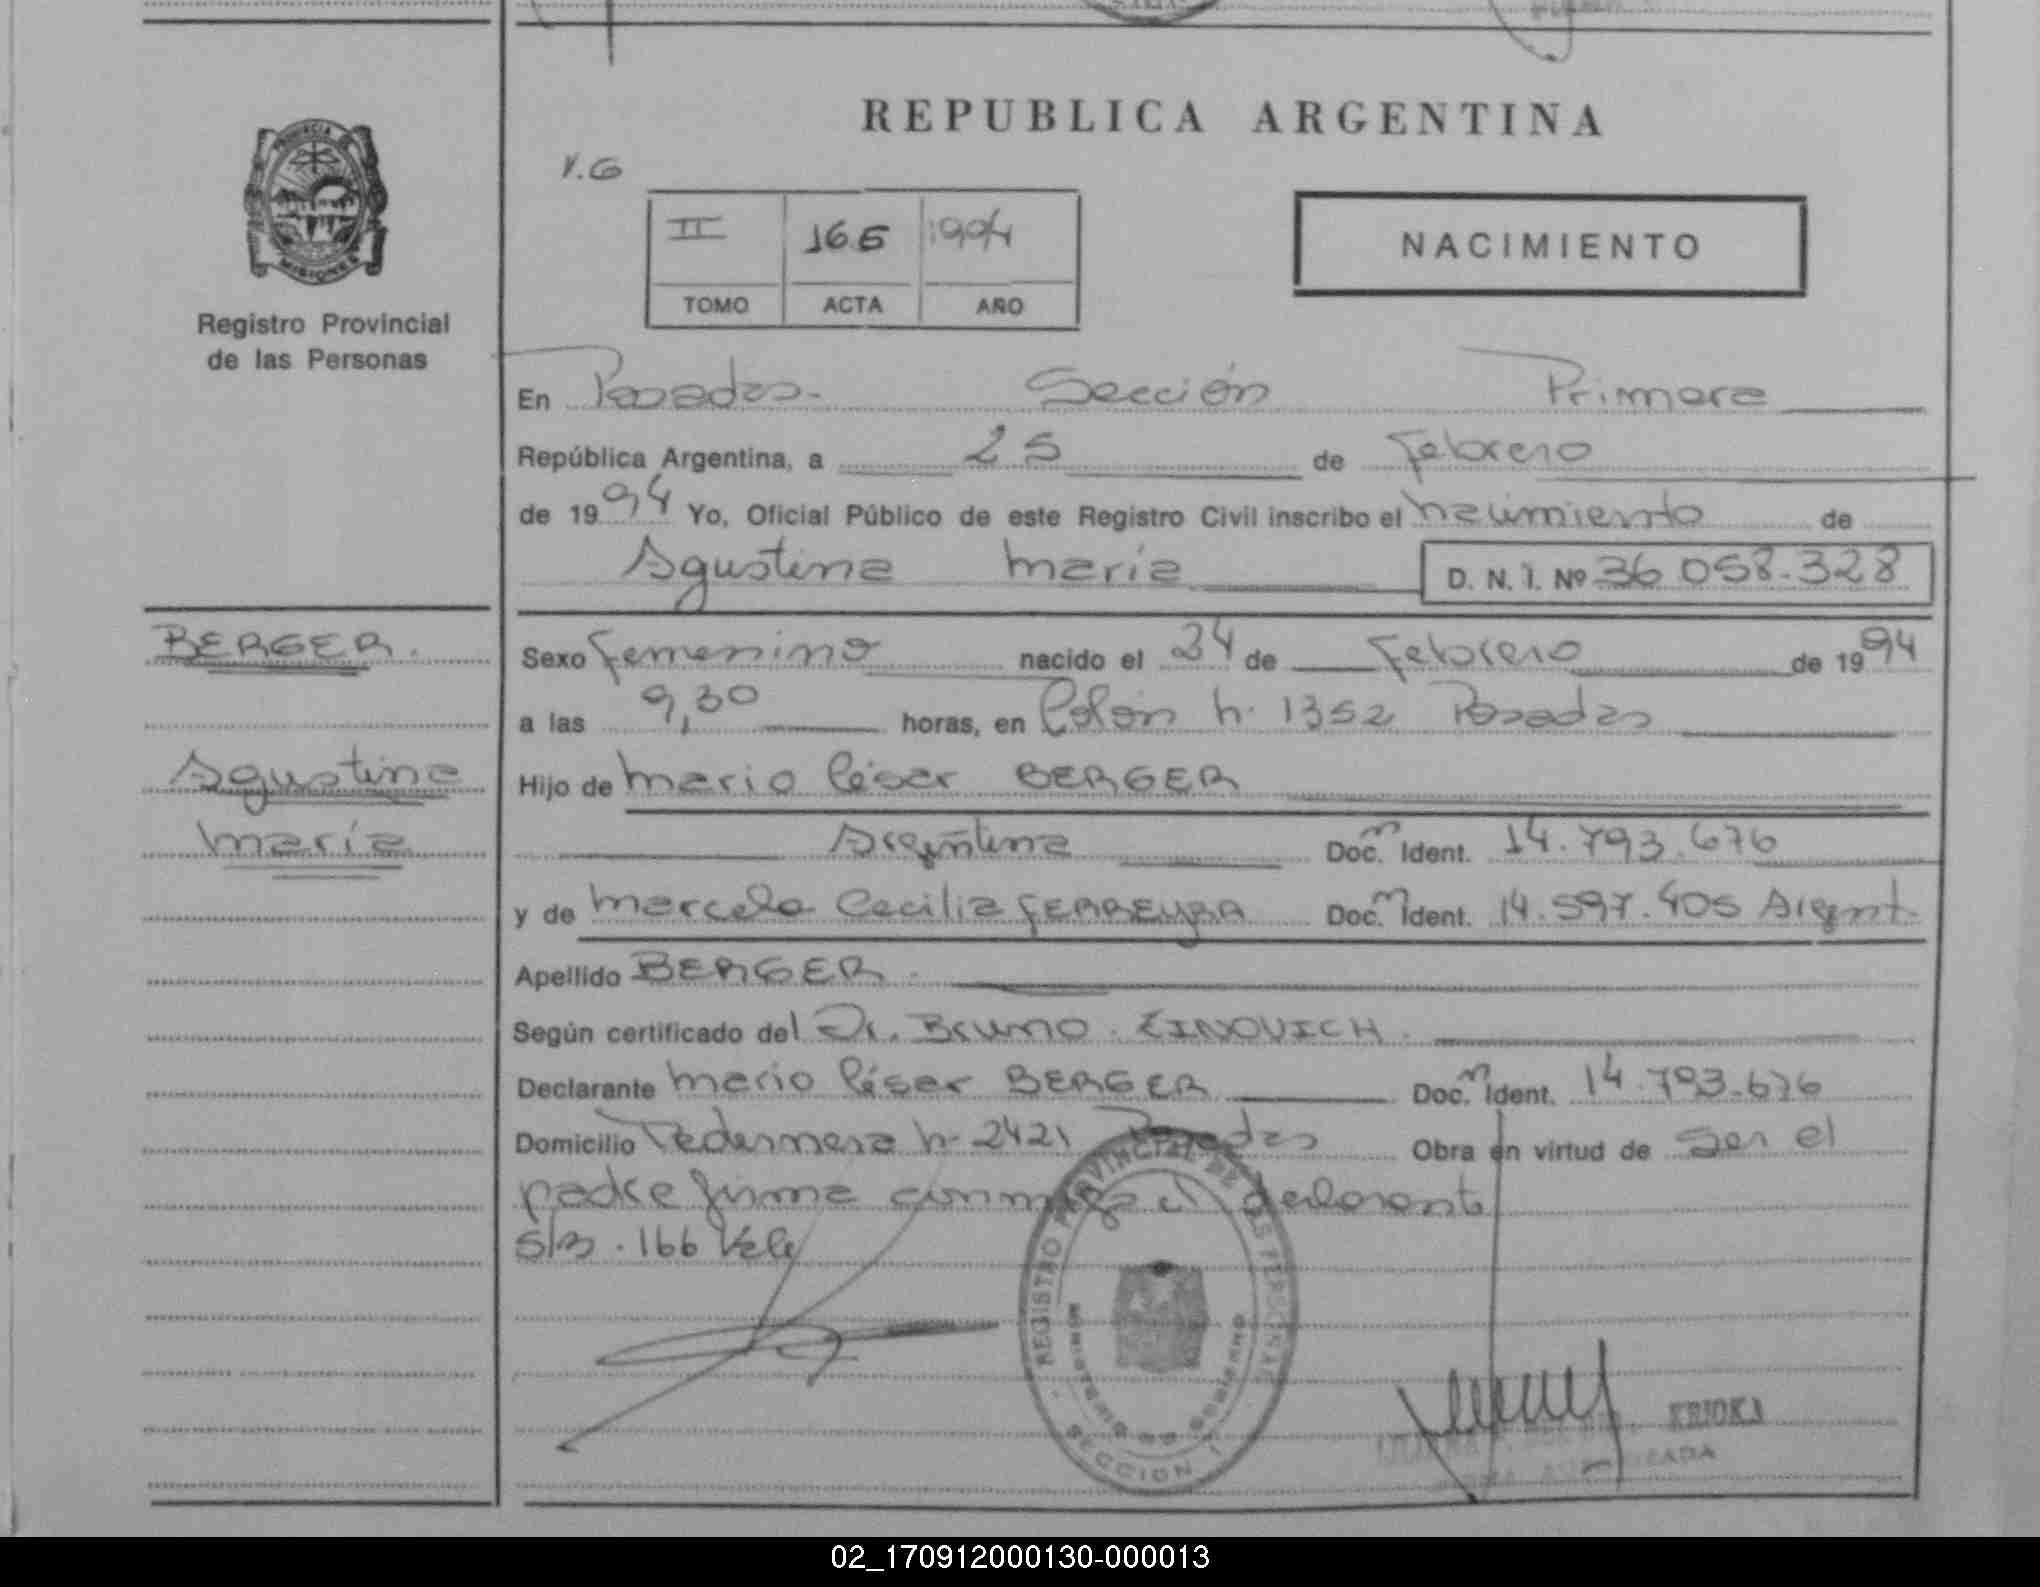 REPUBLICA ARGENTINA
PROVINCIA DE
MISIONES
Registro Provincial
de las Personas
V.G
II 165 1994
TOMO ACTA AÑO
NACIMIENTO
En Posadas- Sección Primera
República Argentina, a 25 de Febrero
de 1994 Yo, Oficial Público de este Registro Civil inscribo el nacimiento de
Agustina María D. N. I. Nº 36 058.328
BERGER.
Agustina
María
Sexo Femenino nacido el 24 de Febrero de 1994
a las 9,30 horas, en Colón n. 1352 Posadas
Hijo de Mario César BERGER
Argentina Doc. Ident. 14.793.676
y de Marcela Cecilia FERREYRA Doc. Ident. 14.597.405 Argent.
Apellido BERGER.
Según certificado del Dr. Bruno. ZINOVICH.
Declarante Mario César BERGER Doc. Ident. 14.793.676
Domicilio Pedernera n- 2421 Posadas Obra en virtud de ser el
padre firma conmigo el declarante
S/B. 166 Vale
REGISTRO PROVINCIAL DE LAS PERSONAS
MINISTERIO DE GOBIERNO
SECCION 1
02_170912000130-000013